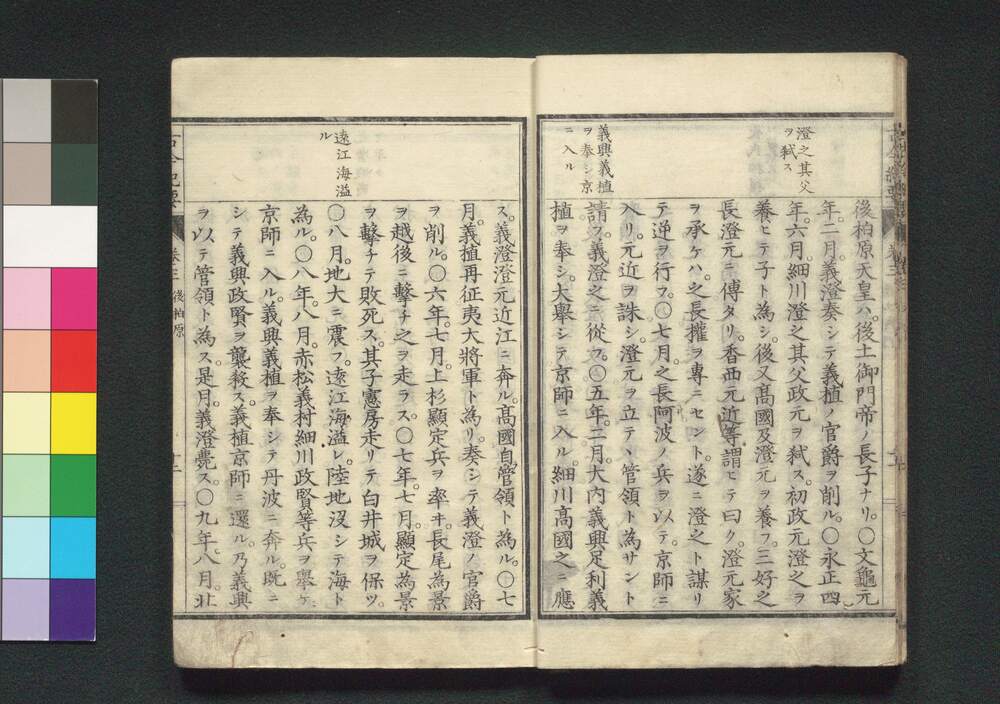 澄之其父
ヲ弑ス
義興義植
ヲ奉シ京
ニ入ル
後柏原天皇ハ。後土御門帝ノ長子ナリ。〇文龜元
年。二月。義澄奏シテ義植ノ官爵ヲ削ル。〇永正四
年。六月。細川澄之其父政元ヲ弑ス。初政元澄之ヲ
養ヒテ子ト為シ。後又髙國及澄元ヲ養フ。三好之
長澄元ニ傅タリ。香西元近等謂ヒテ曰ク。澄元家
ヲ承ケハ。之長擅ヲ專ニセント。遂ニ澄之ト謀リ
テ逆ヲ行フ。〇七月。之長阿波ノ兵ヲ以テ京師ニ
入リ。元近ヲ誅シ。澄元ヲ立テヽ管領ト為サント
請フ。義澄之ニ從フ。〇五年。二月。大内義興足利義
植ヲ奉シ。大擧シテ京師ニ入ル。細川高國之ニ應
遠江海溢
ル
ス。義澄澄元近江ニ奔ル。髙國自管領ト為ル。〇七
月。義植再征夷大將軍ト為リ。奏シテ義澄ノ官爵
ヲ削ル。〇六年。七月。上杉顯定兵ヲ率ヰ。長尾為景
ヲ越後ニ擊チ之ヲ走ラス。〇七年。七月。顯定為景
ヲ擊チテ敗死ス。其子憲房走リテ白井城ヲ保ツ。
〇八月。地大ニ震フ。遠江海溢レ。陸地沒シテ海ト
為ル。〇八年。八月。赤松義村細川政賢等兵ヲ擧ケ
京師ニ入ル。義興義植ヲ奉シテ丹波ニ奔ル。既ニ
シテ義興政賢ヲ襲殺ス。義植京師ニ還ル。乃義興
ヲ以テ管領ト為ス。是月。義澄薨ス。〇九年。八月。北
古今紀要 卷三 後柏原 十二